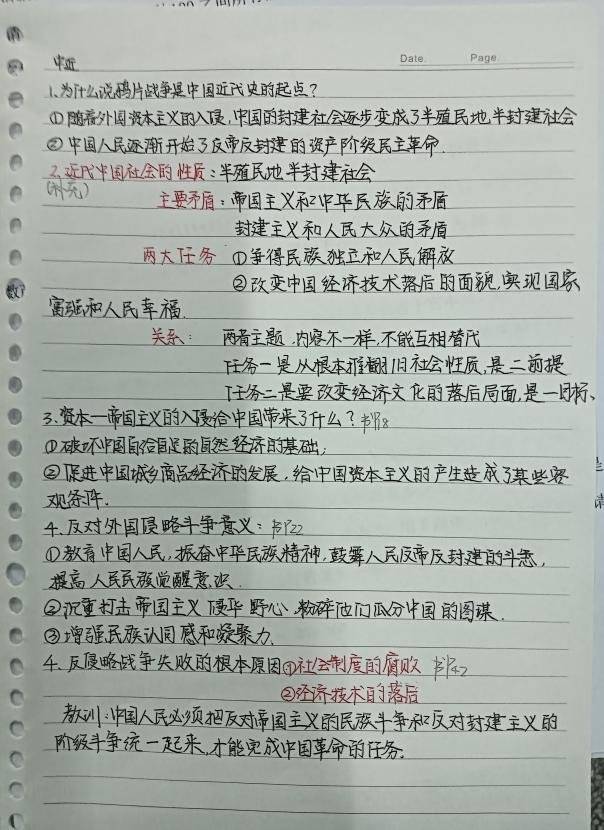 中近
Date.
Page.
1.为什么说鸦片战争是中国近代史的起点?
①随着外国资本主义的入侵,中国的封建社会逐步变成了半殖民地,半封建社会
②中国人民逐渐开始了反帝反封建的资产阶级民主革命.
2.近代中国社会的性质:半殖民地半封建社会
(补充)
主要矛盾:帝国主义和中华民族的矛盾
封建主义和人民大众的矛盾
两大任务 ①争得民族独立和人民解放
②改变中国经济技术落后的面貌,实现国家
富强和人民幸福.
关系: 两者主题、内容不一样,不能互相替代
任务一是从根本推翻旧社会性质,是二前提
任务二是要改变经济文化的落后局面,是一目标、
3.资本—帝国主义的入侵给中国带来了什么?书P18
①破坏中国自给自足的自然经济的基础;
②促进中国城乡商品经济的发展,给中国资本主义的产生造成了某些客
观条件.
4.反对外国侵略斗争意义:书P22
①教育中国人民,振奋中华民族精神,鼓舞人民反帝反封建的斗志,
提高人民民族觉醒意识.
②沉重打击帝国主义侵华野心,粉碎他们瓜分中国的图谋.
③增强民族认同感和凝聚力.
4.反侵略战争失败的根本原因①社会制度的腐败 书P42
②经济技术的落后
教训:中国人民必须把反对帝国主义的民族斗争和反对封建主义的
阶级斗争统一起来,才能完成中国革命的任务.